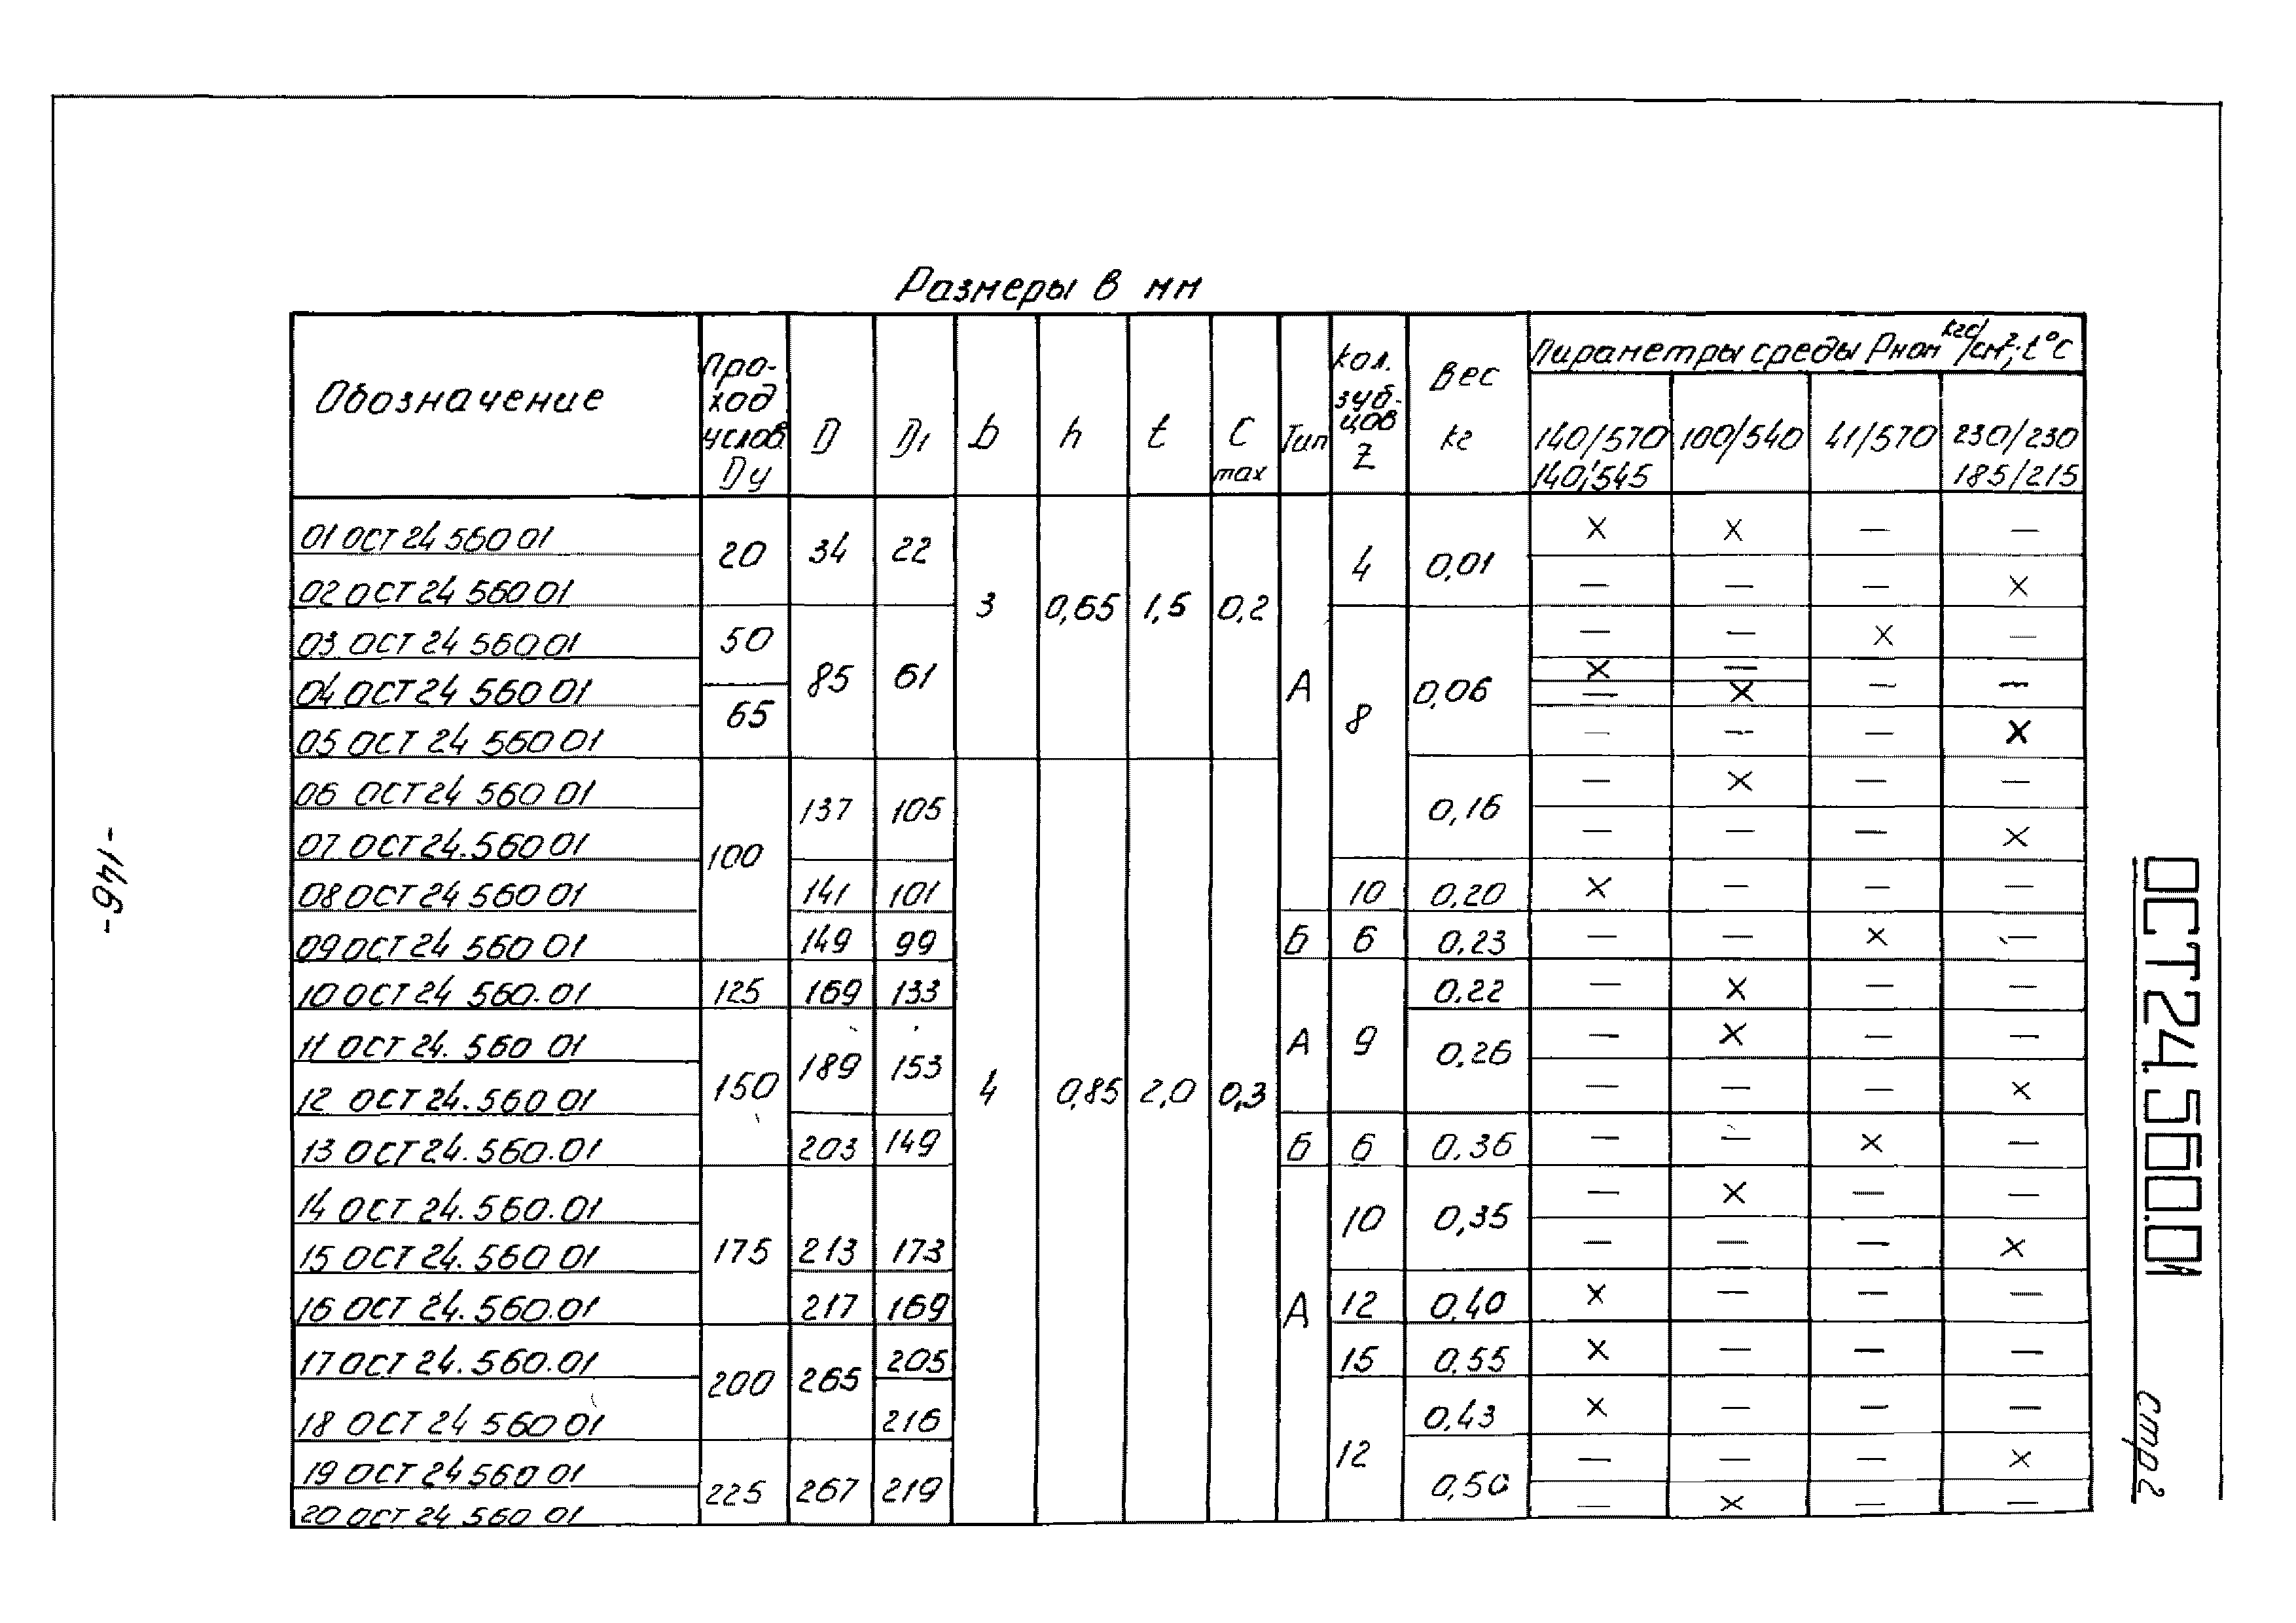 Размеры в мм
Обозначение
Про-
ход
услов.
Dу
D
D1
b
h
t
C
max
Тип
Кол.
зуб-
цов
Z
Вес
кг
Параметры среды Рном кгс/см²; t°C
140/570
140/545
100/540
41/570
230/230
185/215
01 ОСТ 24 560 01 20 34 22 3 0,65 1,5 0,2 А 4 0,01 × × — —
02 ОСТ 24 560 01 — — — ×
03 ОСТ 24 560 01 50 85 61 8 0,06 — — × —
04 ОСТ 24 560 01 × — — —
65 — ×
05 ОСТ 24 560 01 — — — ×
06 ОСТ 24 560 01 100 137 105 4 0,85 2,0 0,3 0,16 — × — —
07 ОСТ 24.560 01 — — — ×
08 ОСТ 24 560 01 141 101 10 0,20 × — — —
09 ОСТ 24 560 01 149 99 Б 6 0,23 — — × —
10 ОСТ 24 560.01 125 169 133 А 9 0,22 — × — —
11 ОСТ 24. 560 01 150 189 153 0,26 — × — —
12 ОСТ 24.560 01 — — — ×
13 ОСТ 24.560.01 203 149 Б 6 0,36 — — × —
14 ОСТ 24.560.01 175 213 173 А 10 0,35 — × — —
15 ОСТ 24.560 01 — — — ×
16 ОСТ 24.560.01 217 169 12 0,40 × — — —
17 ОСТ 24.560.01 200 265 205 15 0,55 × — — —
18 ОСТ 24 560 01 216 12 0,43 × — — —
19 ОСТ 24 560 01 225 267 219 0,50 — — — ×
20 ОСТ 24 560 01 — × — —
-146-
ОСТ 24.560.01
стр 2